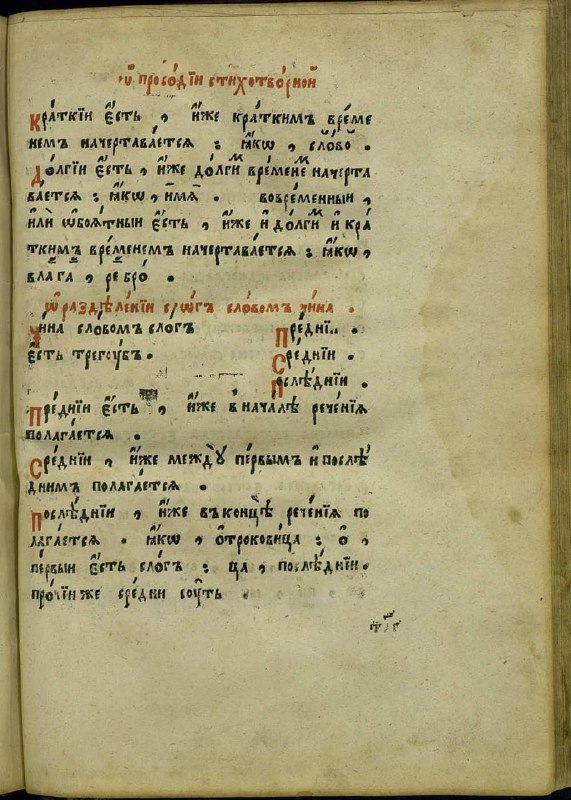 просѡді́и стихотво́рной
Кра́ткїи є҆́сть , и҆́же кра́ткимъ вре́ме
немъ начертава́ется : ꙗ҆́кѡ , сло́во .
До́лгїи є҆́сть , и҆́же до́лгиⷨ вре́менеⷨ начерта
ва́ется : ꙗ҆́кѡ , и҆́мѧ . вовре́менныи ,
и҆лѝ ѡ҆боѧ́тныи є҆́сть , и҆́же и҆ до́лгиⷨ и҆ кра́
ткимъ вре́менемъ начертава́ется : ꙗ҆́кѡ ,
вла́га , ребро́ .
ѡ҆ раздѣле́нїи сло́гъ сло́вомъ чи́на .
Чи́на сло́вомъ сло́гъ Пре́днїи .
є҆́сть трегꙋ́бъ . Сре́днїи .
Послѣ́днїи .
Пре́днїи є҆́сть , и҆́же в нача́лѣ рече́нїѧ
полага́ется .
Сре́днїи , и҆́же междꙋ̀ пе́рвымъ и҆ послѣ́
днимъ полага́ется .
Послѣ́днїи , и҆́же въ конца́ѣ рече́нїѧ по
лага́ется . ꙗ҆́кѡ , ѻ҆трокови́ца : ѻ҆ ,
пе́рвыи є҆́сть сло́гъ : ца , послѣ́днїи .
про́чїи же сре́дни сꙋ́ть .